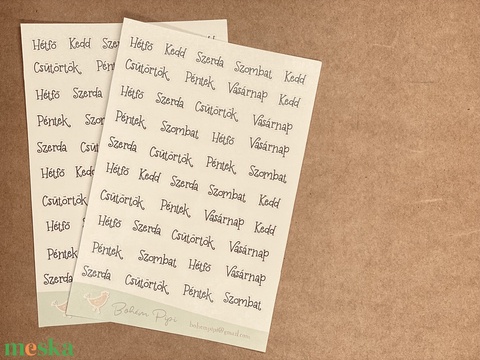 Hétfő Kedd Szerda Szombat Kedd
Csütörtök Péntek Vasárnap Kedd
Hétfő Szerda Csütörtök Vasárnap
Péntek Szombat Hétfő Vasárnap
Szerda Csütörtök Péntek Szombat
Hétfő Kedd Szerda Szombat Kedd
Csütörtök Péntek Vasárnap Kedd
Hétfő Szerda Csütörtök Vasárnap
Péntek Szombat Hétfő Vasárnap
Szerda Csütörtök Péntek Szombat
Bohém Pipi
Hétfő Kedd
Csütörtök
Hétfő Szerda
Péntek
Szerda
Hétfő
Csütörtök
Hétfő
Péntek
Szerda
meska